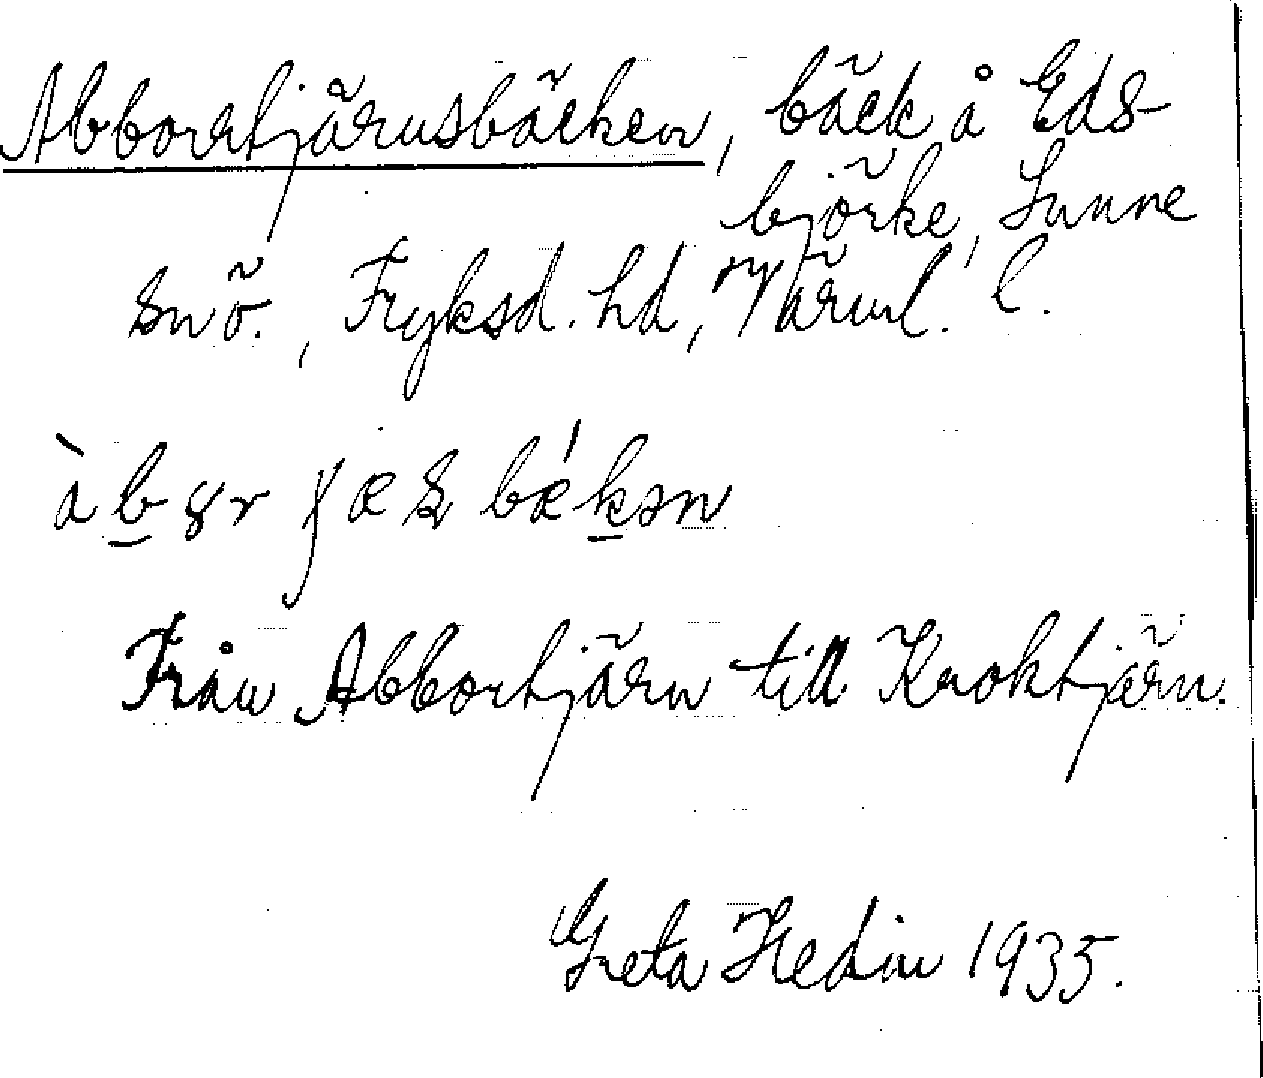 Abborrtjärnsbäcken, bäck å Eds-
björke, Sunne
snö., Fryksd. hd, Värml. l.
àb̲ȣr bǽk̲ən
Från Abborrtjärn till Kroktjärn.
Greta Hedin 1935.